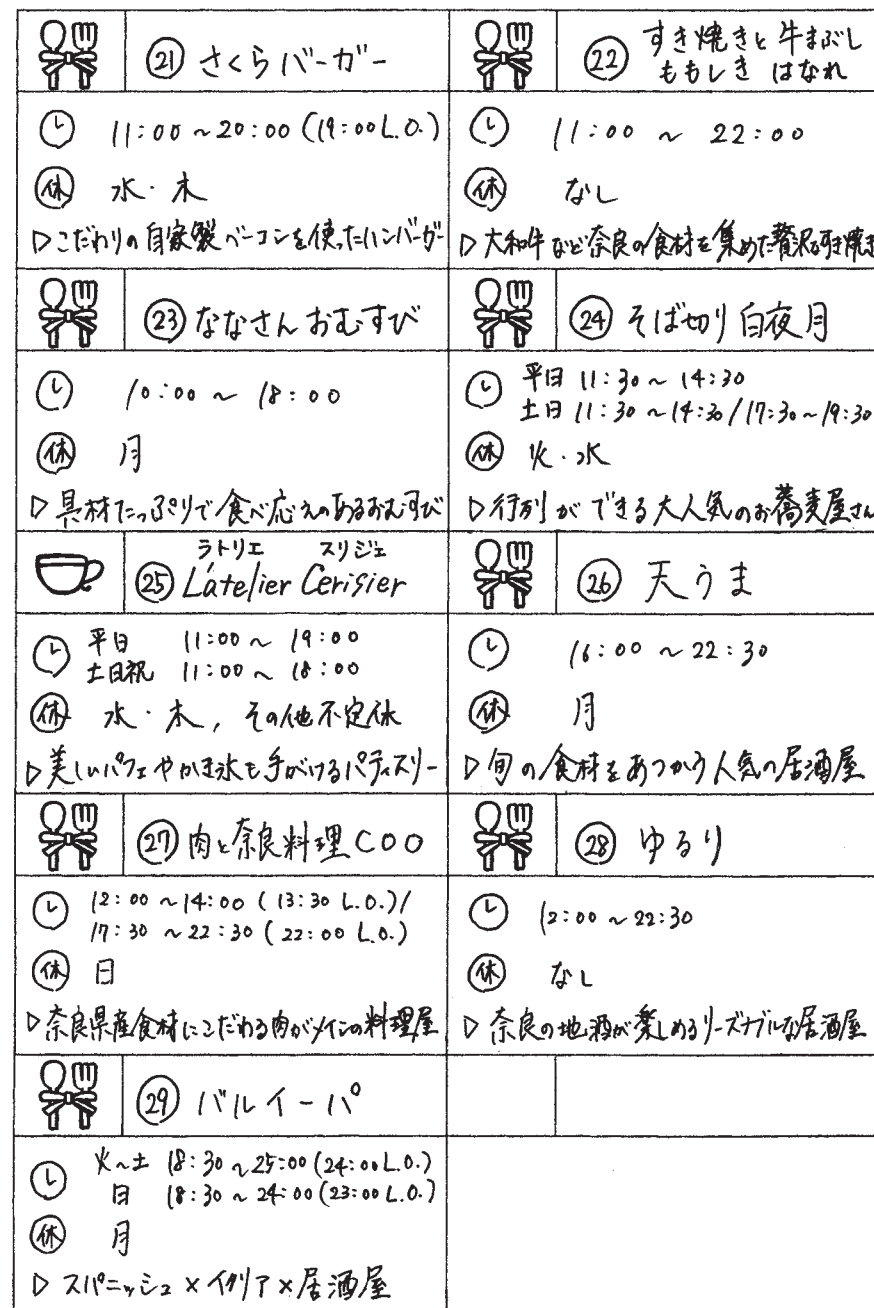 ㉑ さくらバーガー
11:00～20:00 (19:00 L.O.)
休 水・木
▷こだわりの自家製ベーコンを使ったハンバーガー
㉒ すき焼きと牛まぶし
ももしき はなれ
11:00 ～ 22:00
休 なし
▷大和牛など奈良の食材を集めた贅沢なすき焼き
㉓ ななさんおむすび
10:00 ～ 18:00
休 月
▷具材たっぷりで食べ応えのあるおむすび
㉔ そば切り 白夜月
平日 11:30～14:30
土日 11:30～14:30/17:30～19:30
休 火・水
▷行列ができる大人気のお蕎麦屋さん
ラトリエ スリジェ
㉕ L'atelier Cerisier
平日 11:00～19:00
土日祝 11:00～18:00
休 水・木, その他不定休
▷美しいパフェやかき氷も手がけるパティスリー
㉖ 天うま
16:00～22:30
休 月
▷旬の食材をあつかう人気の居酒屋
㉗ 肉と奈良料理COO
12:00～14:00 (13:30 L.O.)/
17:30～22:30 (22:00 L.O.)
休 日
▷奈良県産食材にこだわる肉がメインの料理屋
㉘ ゆるり
12:00～22:30
休 なし
▷奈良の地酒が楽しめるリーズナブルな居酒屋
㉙ バルイーパ
火～土 18:30～25:00 (24:00 L.O.)
日 18:30～24:00 (23:00 L.O.)
休 月
▷スパニッシュ×イタリア×居酒屋